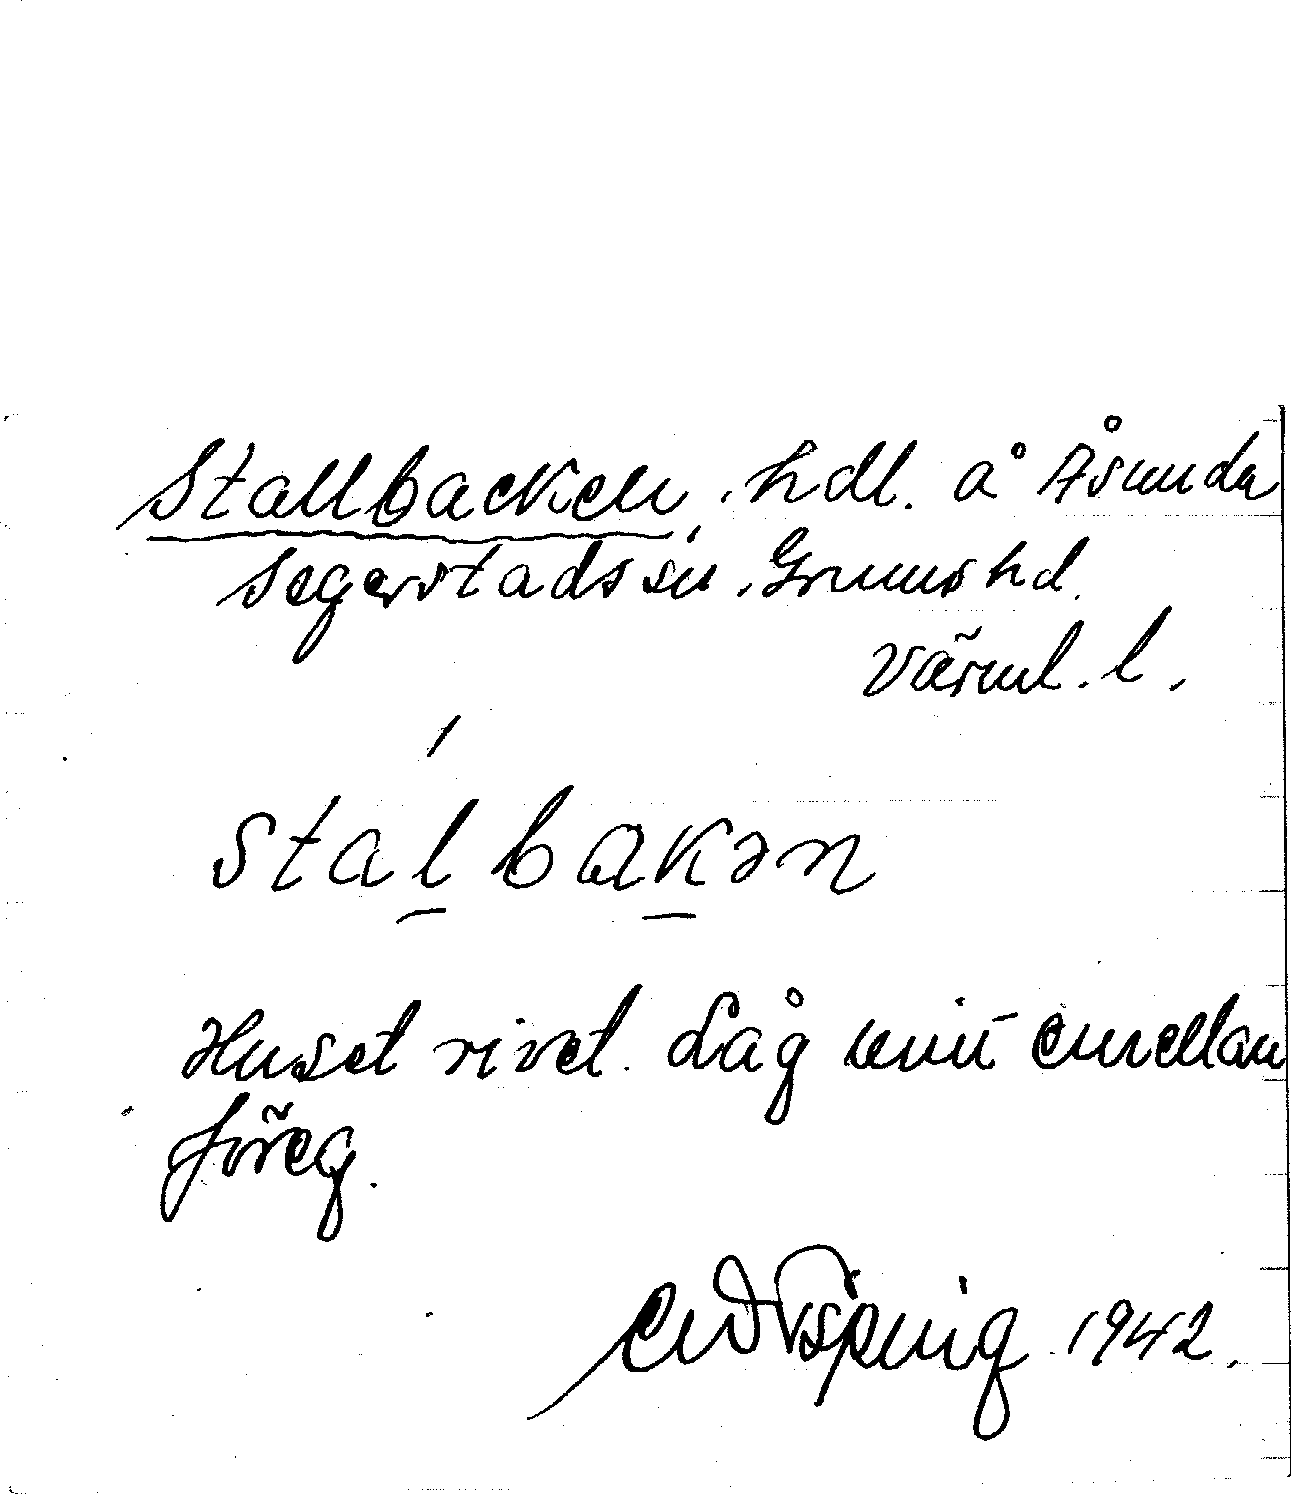 Stallbacken, hdl. å Åsunda
Segerstads sn, Grums hd.
Värml. l.
stalbakən
Huset rivet. Låg mitt emellan
föreg.
1942.